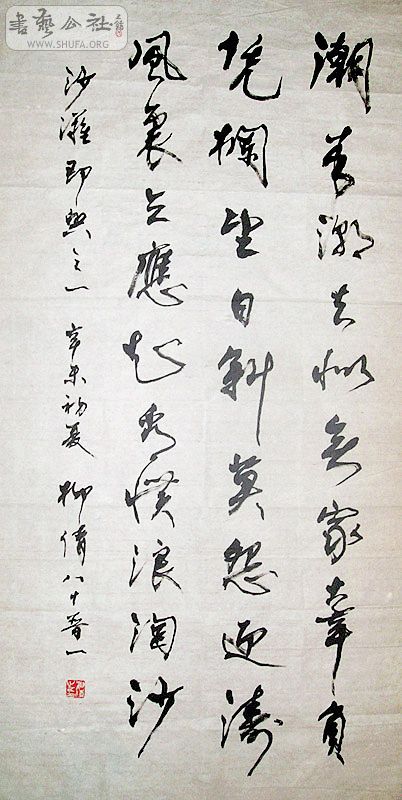 書藝公社
WWW.SHUFA.ORG
潮来潮去似無家辜負
凭欄望日斜莫怨迎濤
風裏立應看慣浪淘沙
沙灘即興之一 辛未初夏 柳倩八十晋一